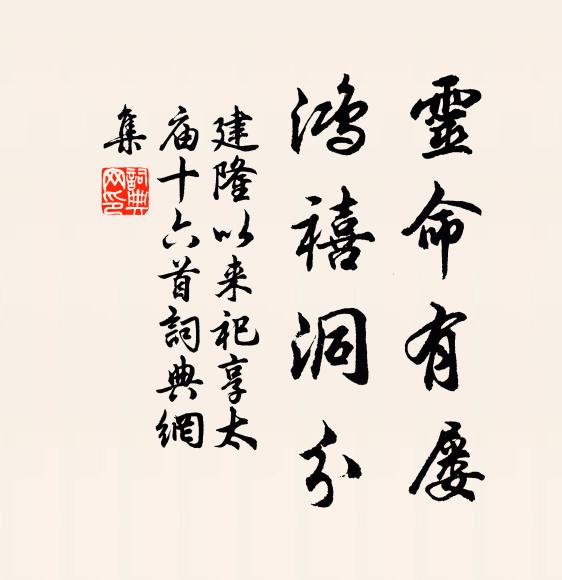 靈命有屡
鴻禧洞分
建隆以来祀享太
庙十六首詞典網
集
詞典網印